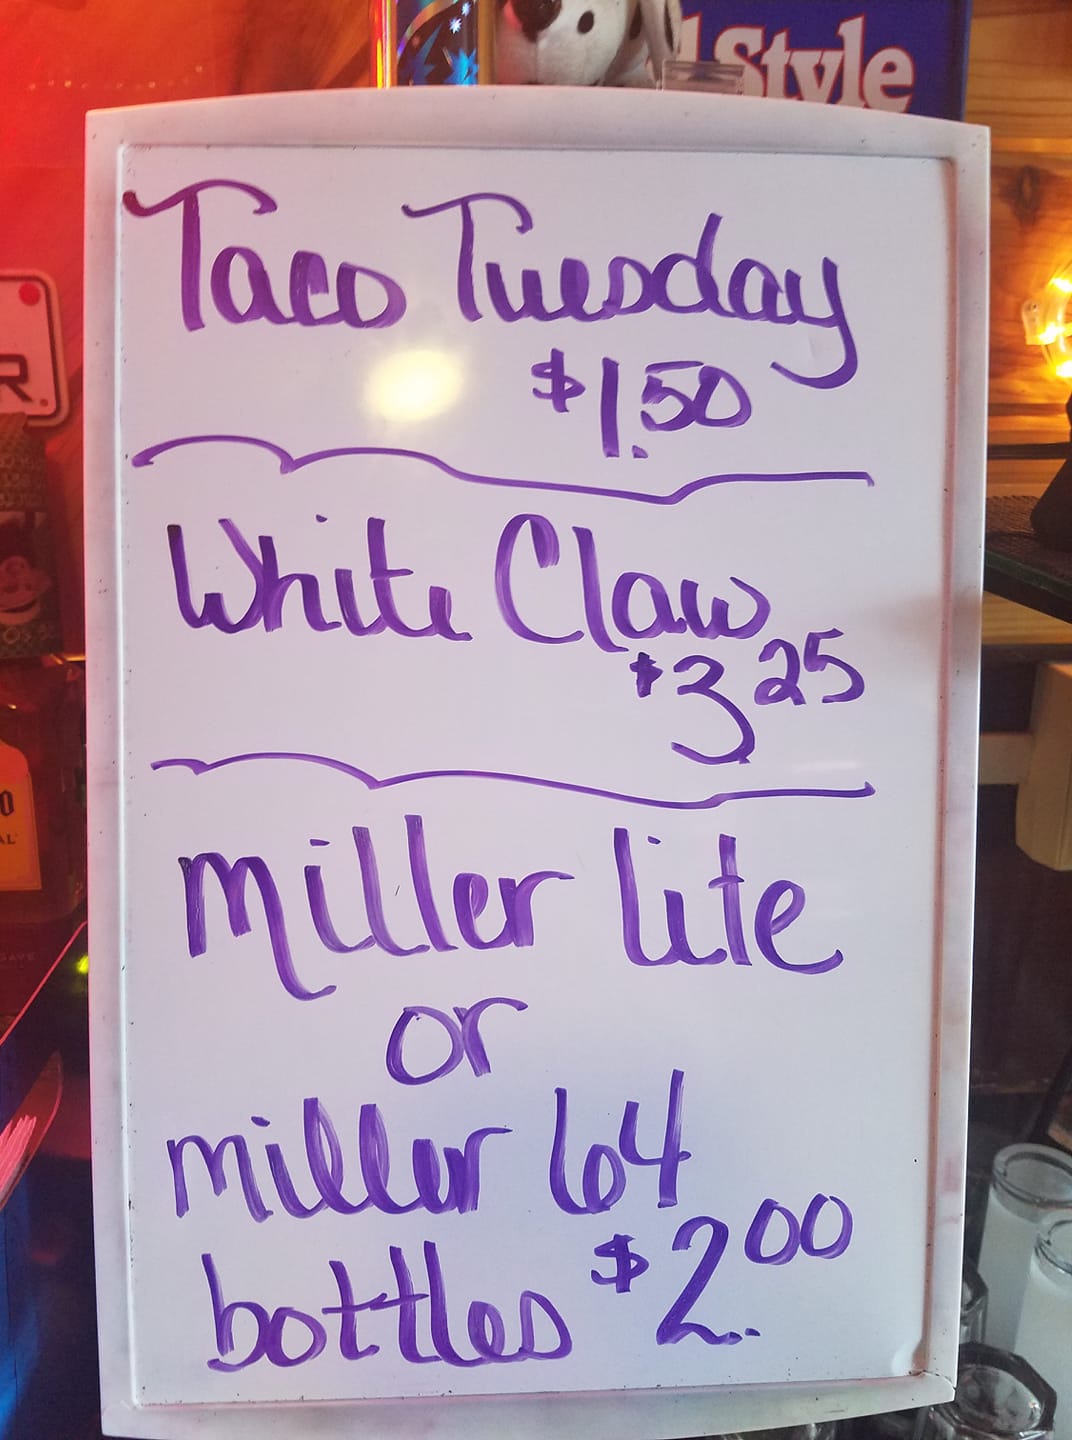 Style
Taco Tuesday
$1.50
White Claw
$3.25
R
Miller lite
or
miller 64
bottles $2.00